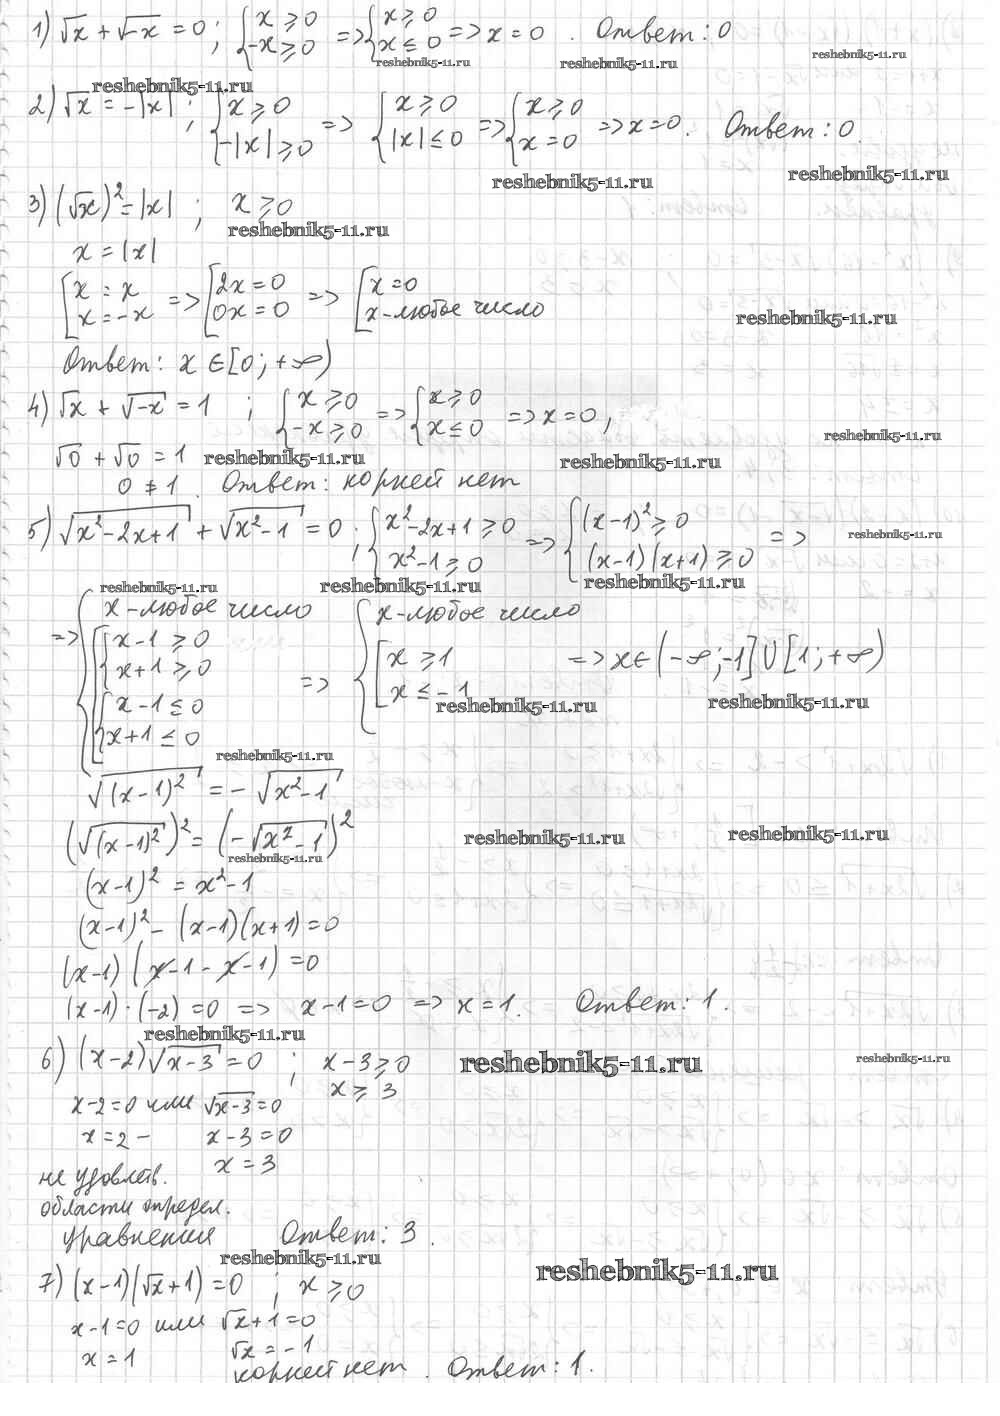 1) √x + √-x = 0 ; { x ⩾ 0 -x ⩾ 0 => { x ⩾ 0 x ⩽ 0 => x = 0 . Ответ: 0
reshebnik5-11.ru reshebnik5-11.ru reshebnik5-11.ru
reshebnik5-11.ru
2) √x = -|x| ; { x ⩾ 0 -|x| ⩾ 0 => { x ⩾ 0 |x| ⩽ 0 => { x ⩾ 0 x = 0 => x = 0. Ответ: 0
reshebnik5-11.ru reshebnik5-11.ru
3) (√x)² = |x| ; x ⩾ 0
reshebnik5-11.ru
x = |x|
[ x = x x = -x => [ 2x = 0 0x = 0 => [ x = 0 x - любое число
reshebnik5-11.ru
Ответ: x ∈ [0; +∞)
4) √x + √-x = 1 ; { x ⩾ 0 -x ⩾ 0 => { x ⩾ 0 x ⩽ 0 => x = 0 ;
reshebnik5-11.ru
√0 + √0 = 1 reshebnik5-11.ru reshebnik5-11.ru
0 ≠ 1 . Ответ: корней нет
5) √x²-2x+1 + √x²-1 = 0 ; { x²-2x+1 ⩾ 0 x²-1 ⩾ 0 => { (x-1)² ⩾ 0 (x-1)(x+1) ⩾ 0 =>
reshebnik5-11.ru
reshebnik5-11.ru reshebnik5-11.ru reshebnik5-11.ru
=> { x - любое число [ { x-1 ⩾ 0 x+1 ⩾ 0 { x-1 ⩽ 0 x+1 ⩽ 0 => { x - любое число [ x ⩾ 1 x ⩽ -1 => x ∈ (-∞; -1] ∪ [1; +∞)
reshebnik5-11.ru reshebnik5-11.ru
reshebnik5-11.ru
√(x-1)² = - √x²-1
(√(x-1)²)² = (-√x²-1)²
reshebnik5-11.ru reshebnik5-11.ru reshebnik5-11.ru
(x-1)² = x²-1
(x-1)² - (x-1)(x+1) = 0
(x-1) (x-1-x-1) = 0
(x-1)·(-2) = 0 => x-1 = 0 => x = 1. Ответ: 1.
reshebnik5-11.ru
6) (x-2)√x-3 = 0 ; x-3 ⩾ 0
reshebnik5-11.ru reshebnik5-11.ru
x ⩾ 3
x-2=0 или √x-3=0
x=2 - x-3=0
x=3
не удовлетв.
области определ.
уравнения Ответ: 3.
reshebnik5-11.ru
7) (x-1)(√x+1) = 0 ; x ⩾ 0
reshebnik5-11.ru
x-1=0 или √x+1=0
x=1 √x = -1
корней нет . Ответ: 1.